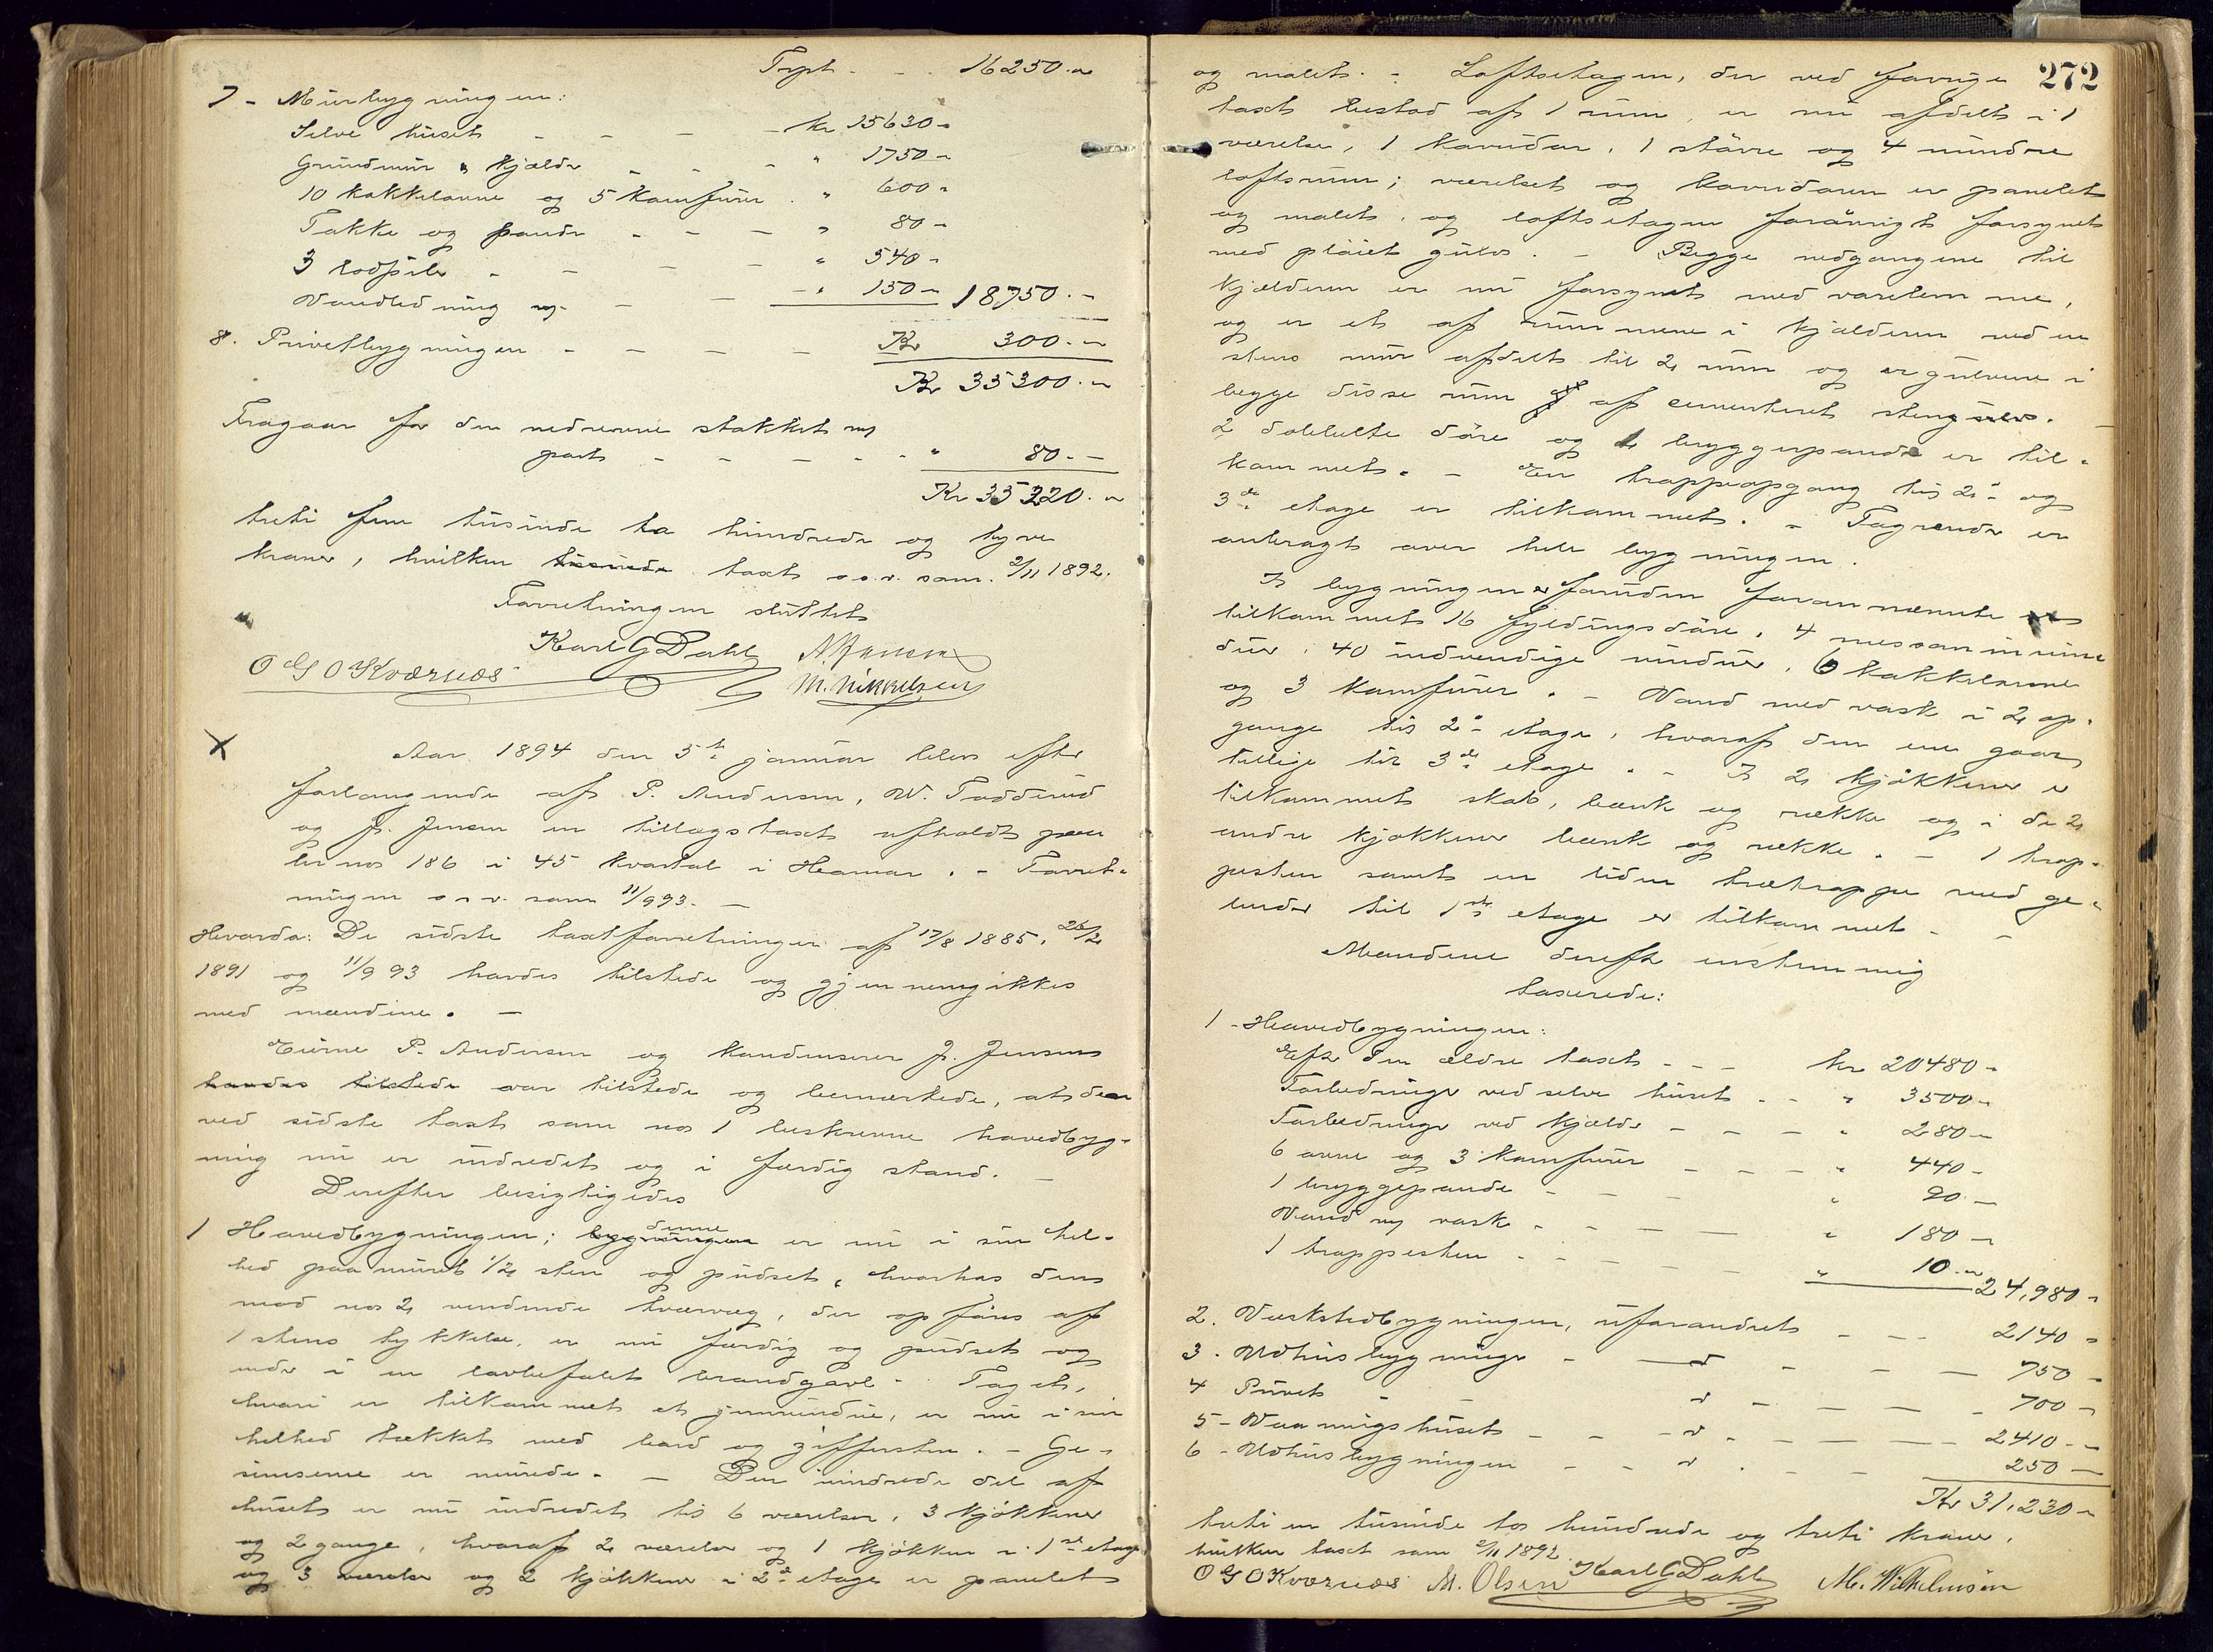 Trpt. - - 16250.-
7 - Murbygningen:
Selve huset - - - - kr 15630 -
Grundmur & kjælder - - - " 1750 -
10 kakkelovne og 5 komfurer . " 600 -
Takke og pande - - - " 80 -
3 lodpiber - - - - " 540 -
Vandledning og - - - " 150 - 18,750. -
8. Privetbygningen - - - - - Kr 300. -
Kr 35300. -
Fragaar for den nedrevne stakket og
port - - - - - - " 80. -
Kr 35220. -
treti fem tusinde to hundrede og tyve
kroner, hvilken tusinde taxt o.s.v. som 2/11 1892.
Forretningen sluttet
Karl G Dahl
O G O Kværnes M. Mikkelsen
Aar 1894 den 5te januar blev efter
forlangende af P. Andersen, W. Fodderud
og J. Jensen en tillægstaxt afholdt paa
br nos 186 i 45 kvartal i Hamar. - Forret-
ningen o s v. som 11/9 93. -
Hvorda: De sidste taxtforretninger af 17/8 1885, 26/2
1891 og 11/9 93 havdes tilstede og gjennemgikkes
med mændene. -
Eierne P. Andersen og konduktør J. Jensen
havdes tilstede var tilstede og bemærkede, at den
ved sidste taxt som nos 1 beskrevne hovedbyg-
ning nu er indredet og i færdig stand. -
Derefter besigtigedes
1 Hovedbygningen; bygningen denne er nu i sin hel-
hed paamuret 1/2 sten og pudset, hvorhos den
mod nos 2 vendende tværvæg, der opføres af
1 stens tykkelse, er nu færdig og pudset og
ender i en lovbefalet brandgavl - Taget,
hvori er tilkommet et jernvindue, er nu i sin
helhed tækket med bord og ziffersten. - Ge-
simserne er murede. - Den indrede del af
huset er nu indredet til 6 værelser, 3 kjøkkener
og 2 gange, hvoraf 2 værelser og 1 kjøkken i 1ste etage
og 3 værelser og 2 kjøkkener i 2den etage er panelet
272
og malet. - Loftsetagen, der ved forrige
taxt bestod af 1 rum, er nu afdelt i 1
værelse, 1 korridor, 1 større og 4 mindre
loftsrum; værelset og korridoren er panelet
og malet, og loftsetagen forøvrigt forsynet
med pløiet gulv. - Begge nedgangene til
kjælderen er nu forsynet med varelemme,
og er et af rummene i kjælderen ved en
stens mur afdelt til 2 rum og er gulvene i
begge disse rum af cementeret stengulv. -
2 dobbelte døre og 1 bryggepande er til-
kommet. - En trappeopgang til 2den og
3de etage er tilkommet. - Tagrender er
anbragt over hele bygningen.
I bygningen er foruden forannævnte
tilkommet 16 fyldingsdøre, 4 messaninvin-
duer, 40 indvendige vinduer, 6 kakkelovne
og 3 komfurer. - Vand med vask i 2 op-
gange til 2den etage, hvoraf den ene gaar
tillige til 3de etage. - I 2 kjøkkener er
tilkommet skab, bænk og række og i de 2
andre kjøkkener bænk og række. - 1 trap-
pesten samt en liden trætrappe med ge-
lænder til 1ste etage er tilkommet. -
Mændene derefter enstemmig
taxerede:
1 - Hovedbygningen:
Efter den ældre taxt - - - kr 20480 -
Forbedringer ved selve huset - - " 3500 -
Forbedringer ved kjælder - - - " 280 -
6 ovne og 3 komfurer - - - " 440 -
1 bryggepande - - - " 90 -
Vand og vask - - - - " 180 -
1 trappesten - - - - " 10 - 24,980 -
2. Verkstedbygningen, uforandret - - - 2140 -
3. Udhusbygninger - d - - - 750 -
4 Privet - - d - - - 700 -
5 - Vaaningshuset - - d - - - 2410 -
6 - Udhusbygningen - - d - - - 250 -
Kr 31,230 -
treti en tusinde to hundrede og treti kroner,
hvilken taxt som 2/11 1892.
O G O Kværnes M. Olsen Karl G Dahl M. Wilhelmsen